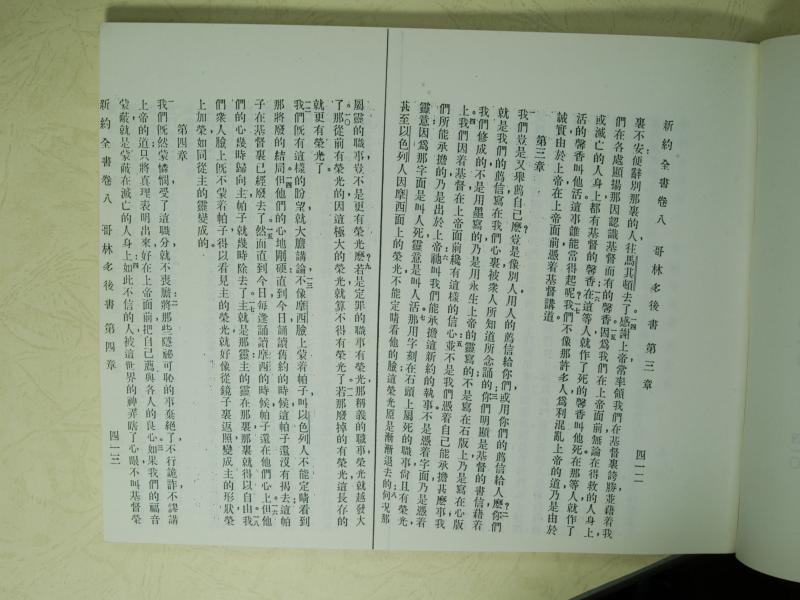 新約全書卷八　哥林多後書　第三章　四一二
裏不安便辭別那裏的人往馬其頓去了感謝上帝常率領我們在基督裏誇勝並藉着我
們在各處顯揚那因認識基督而有的馨香因爲我們在上帝面前無論在得救的人身上
或滅亡的人身上都有基督的馨香在這等人就作了死的馨香叫他死在那等人就作了
活的馨香叫他活這事誰能當得起呢我們不像那許多人爲利混亂上帝的道乃是由於
誠實由於上帝在上帝面前憑着基督講道
第三章
我們豈是又舉薦自己麽豈是像別人用人的薦信給你們或用你們的薦信給人麽你們
就是我們的薦信寫在我們心裏被衆人所知道所念誦的你們明顯是基督的書信藉着
我們修成的不是用墨寫的乃是用永生上帝的靈寫的不是寫在石版上乃是寫在心版
上我們因着基督在上帝面前纔有這樣的信心並不是我們憑着自己能承擔甚麽事我
們所能承擔的乃是出於上帝祂叫我們能承擔這新約的執事不是憑着字面乃是憑着
靈意因爲那字面是叫人死靈意是叫人活那用字刻在石頭上屬死的職事尚且有榮光
甚至以色列人因摩西面上的榮光不能定睛看他的臉這榮光原是漸漸退去的何況那
屬靈的職事豈不是更有榮光麽若是定罪的職事有榮光那稱義的職事榮光就越發大
了那從前有榮光的因這極大的榮光就算不得有榮光了若那廢掉的有榮光這長存的
就更有榮光了
我們旣有這樣的盼望就大膽講論不像摩西臉上蒙着帕子叫以色列人不能定睛看到
那將廢的結局但他們的心地剛硬直到今日誦讀舊約的時候這帕子還沒有揭去這帕
子在基督裏已經廢去了然而直到今日每逢誦讀摩西的時候帕子還在他們心上但他
們的心幾時歸向主帕子就幾時除去了主就是那靈主的靈在那裏那裏就得以自由我
們衆人臉上旣不蒙着帕子得以看見主的榮光就好像從鏡子裏返照變成主的形狀榮
上加榮如同從主的靈變成的
第四章
我們旣然蒙憐憫受了這職分就不喪膽將那些隱祕可恥的事棄絕了不行詭詐不謬講
上帝的道只將眞理表明出來好在上帝面前把自己薦與各人的良心如果我們的福音
蒙蔽就是蒙蔽在滅亡的人身上如此不信的人被這世界的神弄瞎了心眼不叫基督榮
新約全書卷八　哥林多後書　第四章　四一三